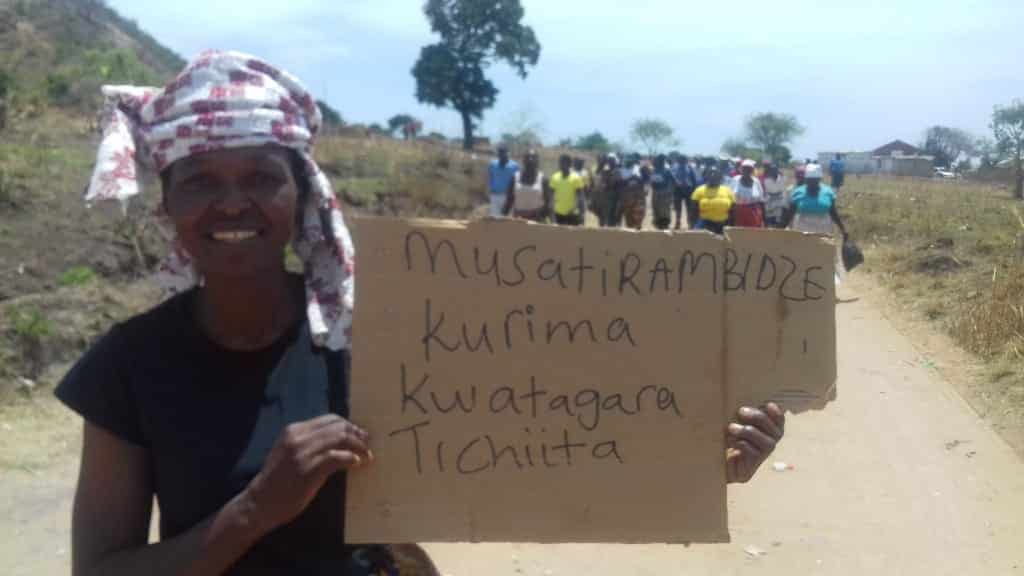 MusatiRAMBIDZE
kurima
kwatagara
Tichiita